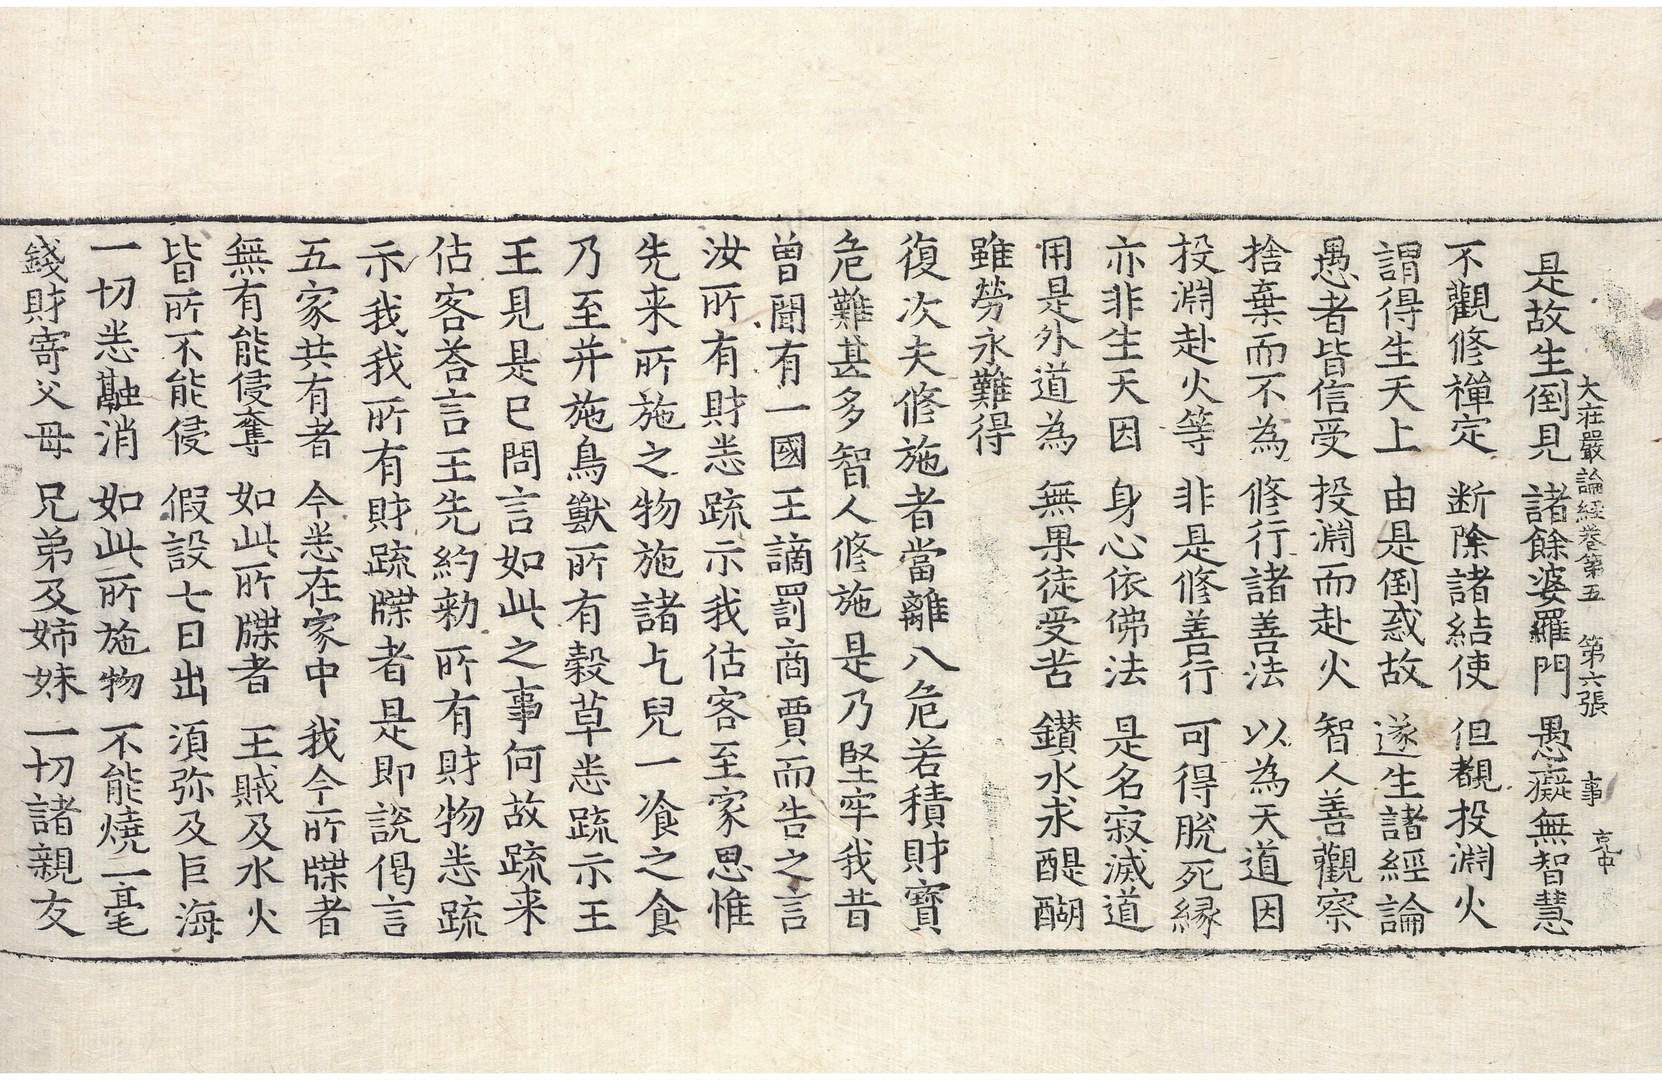 大莊嚴論經卷第五 第六張 事
是故生倒見 諸餘婆羅門 愚癡無智慧
不觀修禪定 断除諸結使 但覩投淵火
謂得生天上 由是倒惑故 遂生諸經論
愚者皆信受 投淵而赴火 智人善觀察
捨棄而不為 修行諸善法 以為天道因
投淵赴火等 非是修善行 可得脫死縁
亦非生天因 身心依佛法 是名寂滅道
用是外道為 無果徒受苦 鑚水求醍醐
雖勞永難得
復次夫修施者當離八危若積財寶
危難甚多智人修施是乃堅牢我昔
曽聞有一國王謫罰商賈而告之言
汝所有財悉疏示我估客至家思惟
先来所施之物施諸乞兒一飡之食
乃至并施鳥獸所有穀草悉疏示王
王見是已問言如此之事何故疏来
估客荅言王先約勑所有財物悉疏
示我我所有財疏牒者是即說偈言
五家共有者 今悉在家中 我今所牒者
無有能侵奪 如此所牒者 王賊及水火
皆所不能侵 假設七日出 湏弥及巨海
一切悉融消 如此所施物 不能燒一毫
錢財寄父母 兄弟及姊妹 一切諸親友